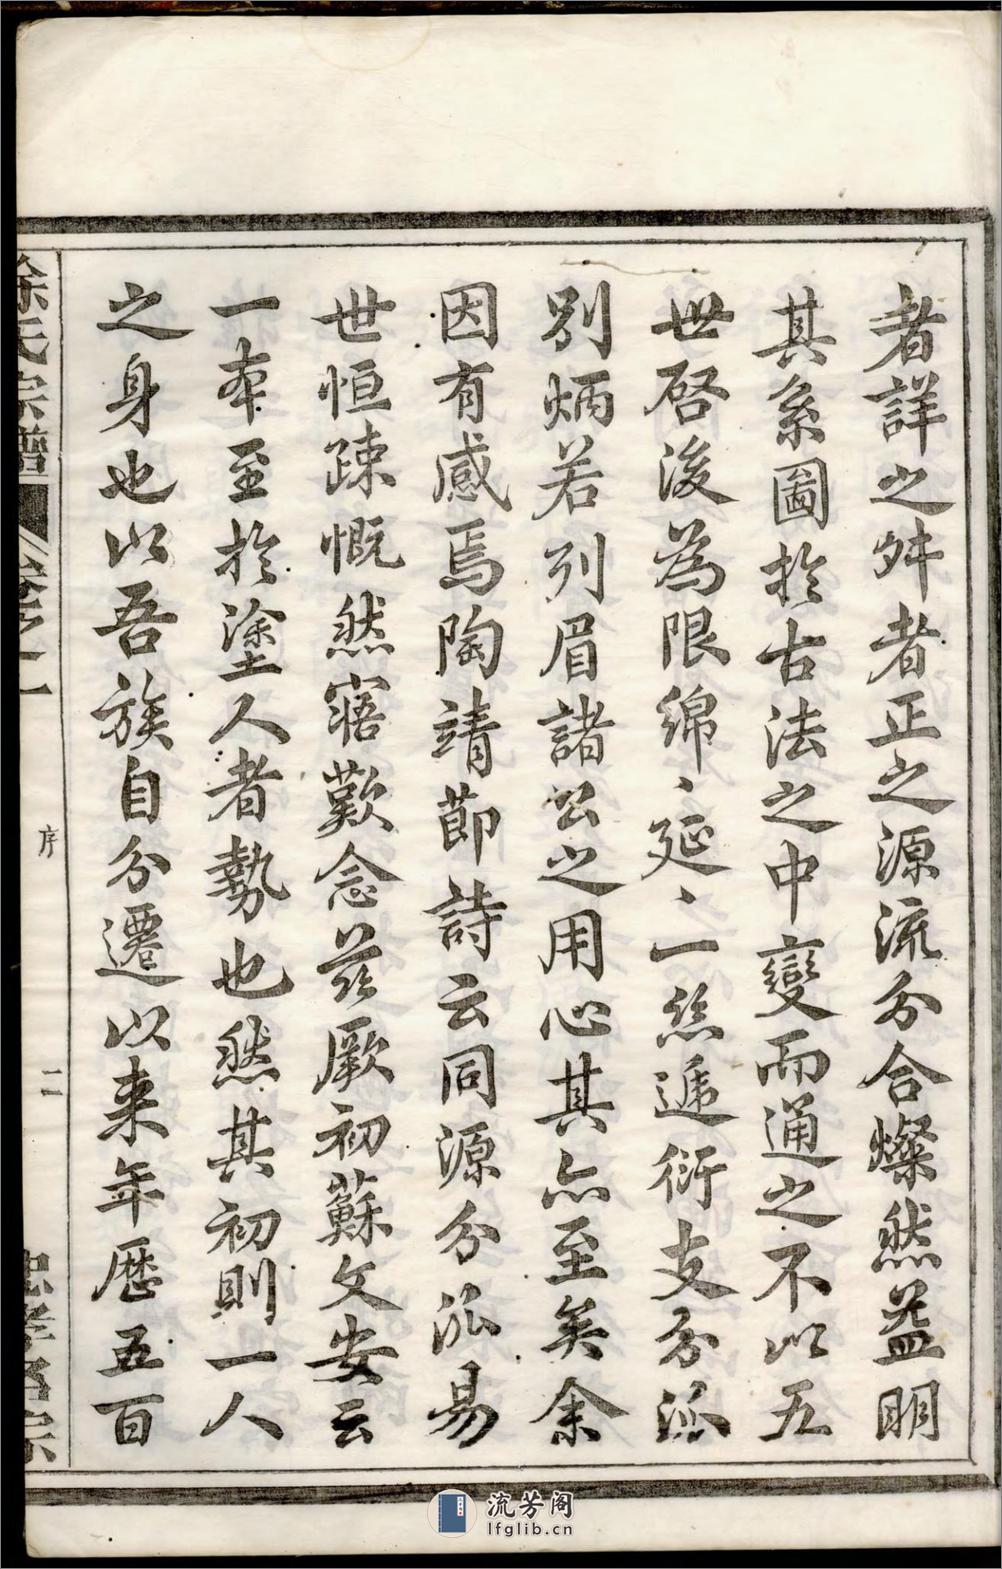 者詳之舛者正之源流分合燦然益明
其系圖於古法之中變而通之不以五
世啓後為限綿、延、一絲遞衍支分派
別炳若列眉諸公之用心其亦至矣余
因有感焉陶靖節詩云同源分派易
世恒疎慨然寤歎念茲厥初蘇文安云
一本至於塗人者勢也然其初則一人
之身也以吾族自分遷以来年歷五百
徐氏宗譜
卷之一
序
二
忠孝名宗
流芳阁
lfglib.cn